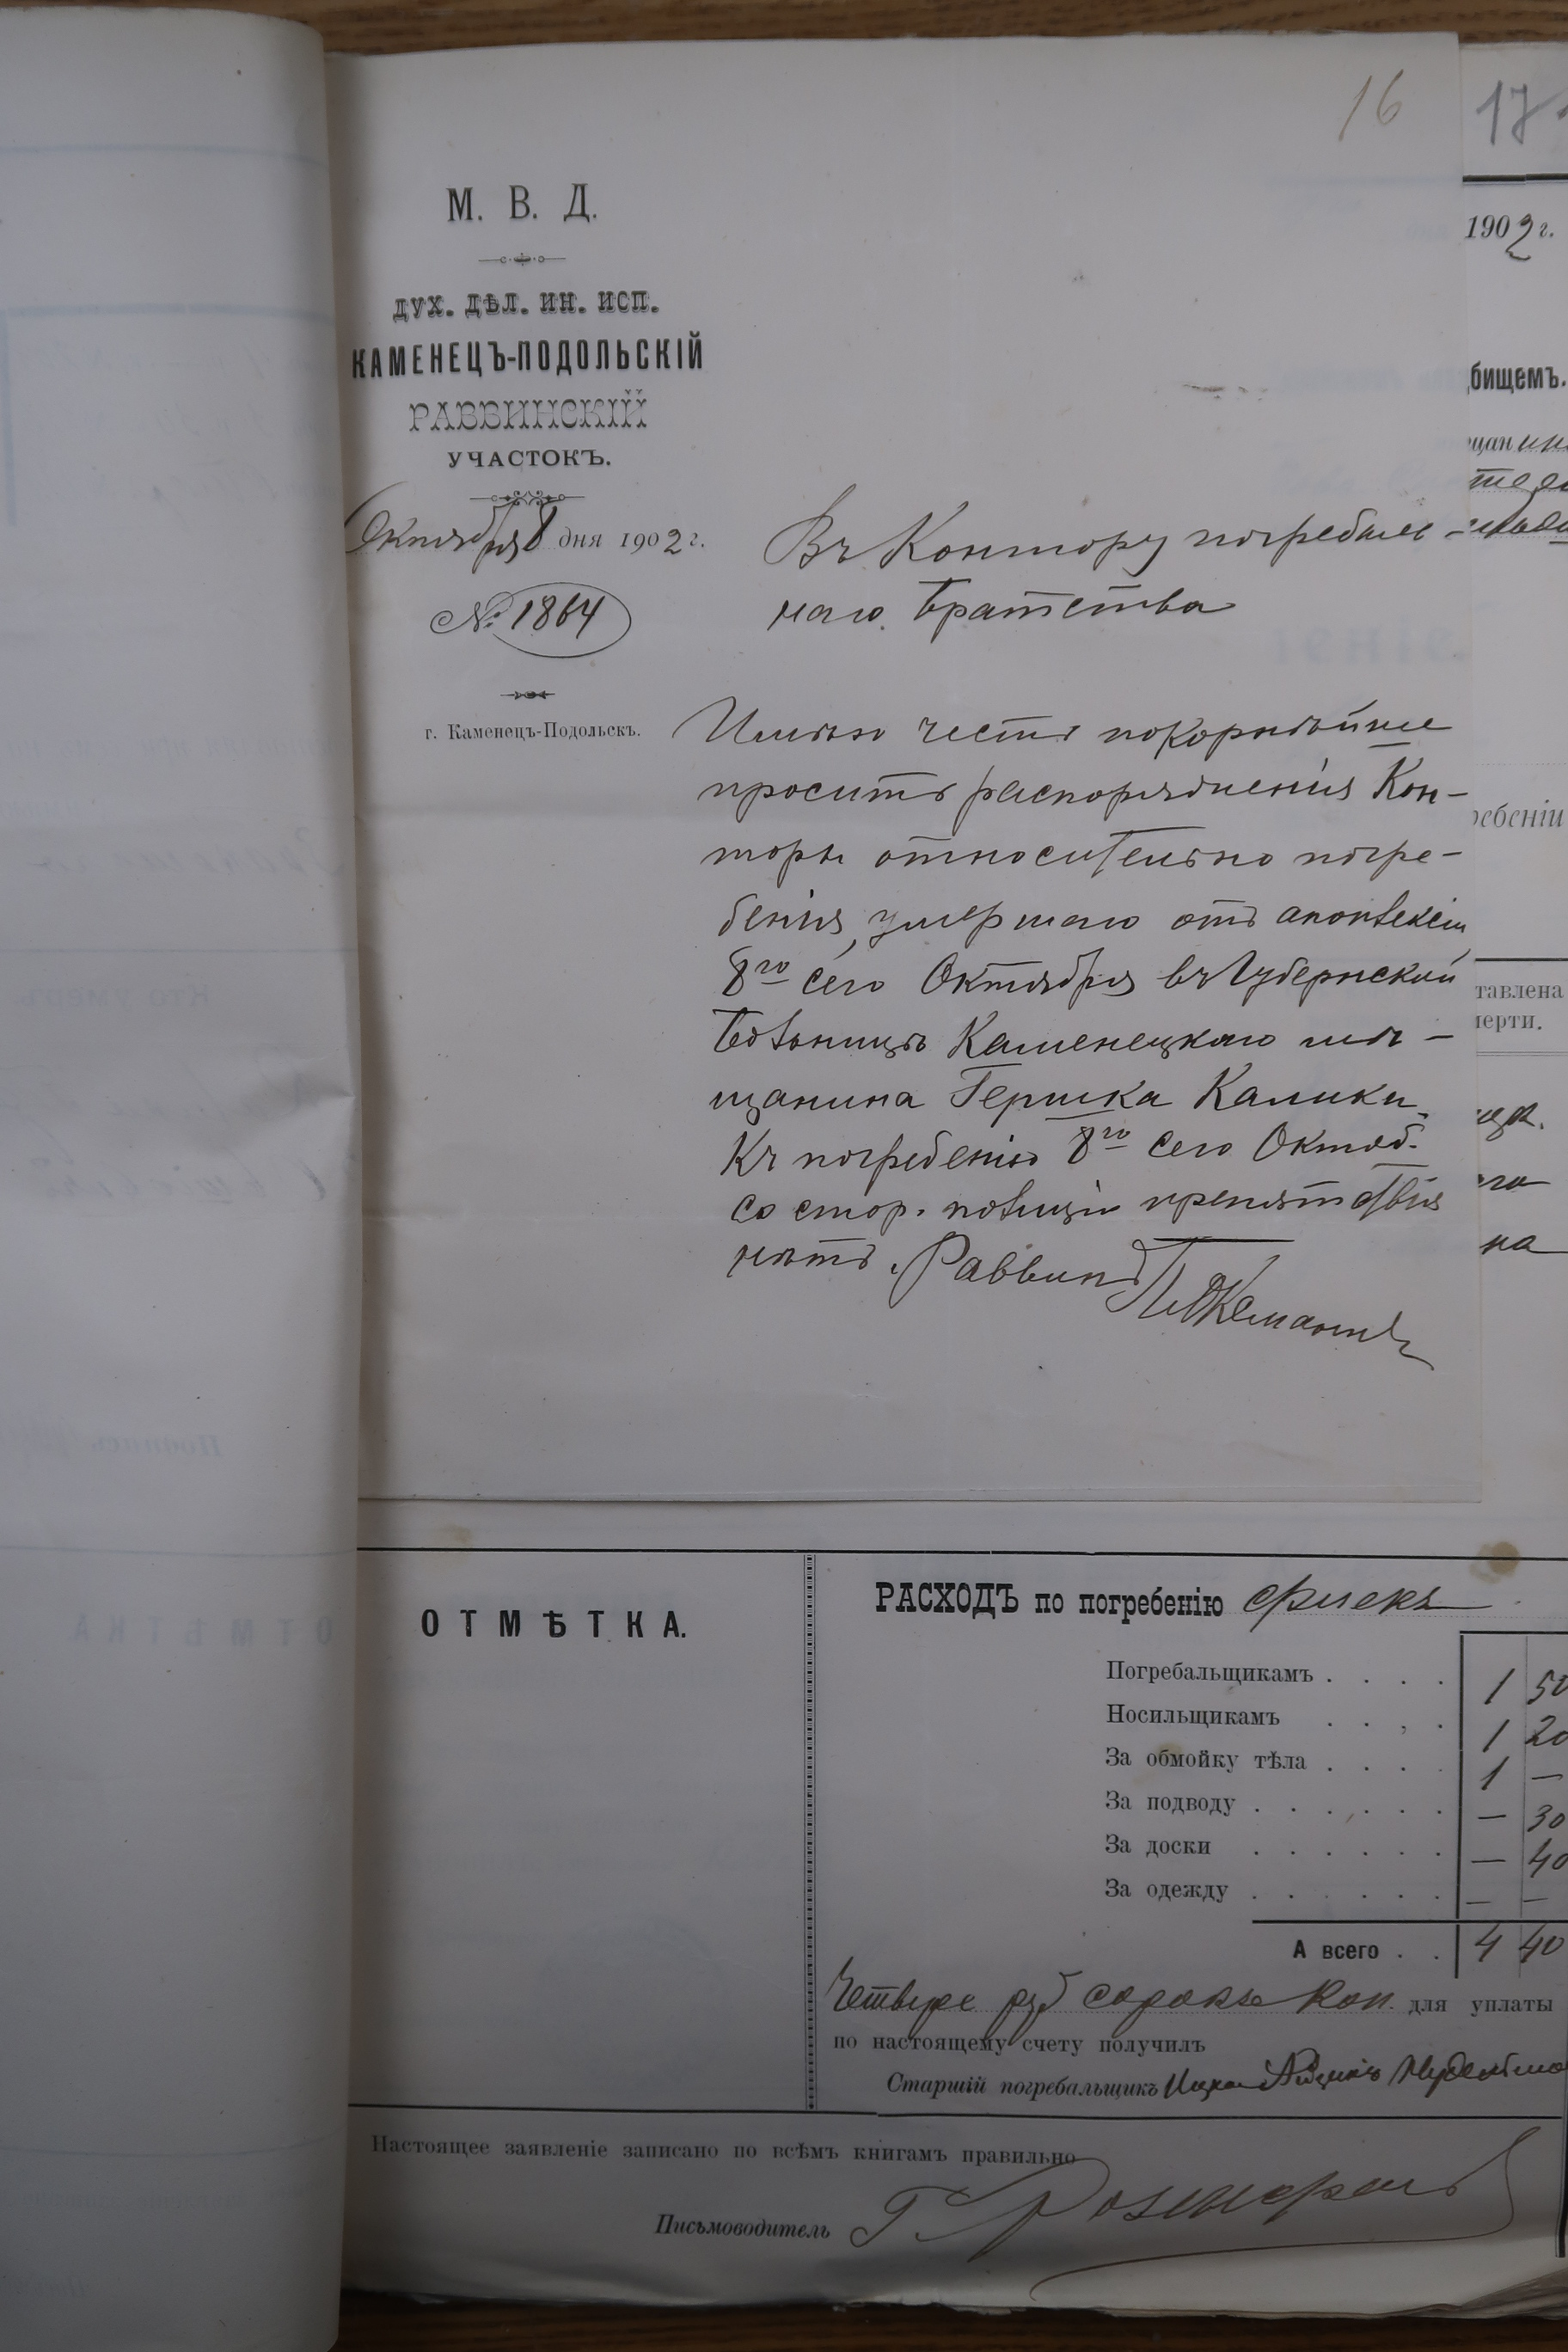 16
17.
М. В. Д.
ДУХ. ДѢЛ. ИН. ИСП.
КАМЕНЕЦЪ-ПОДОЛЬСКІЙ
РАВВИНСКІЙ
УЧАСТОКЪ.
Октября 8 дня 1902 г.
№ 1864
г. Каменецъ-Подольскъ.
Въ Контору погребаль-
наго Братства
Имѣю честь покорнѣйше
просить распоряженія Кон-
торы относительно погре-
бенія, умершаго отъ апоплексіи
8го сего Октября въ Губернской
Больницѣ Каменецкаго мѣ-
щанина Гершка Калики.
Къ погребенію 8го сего Октяб.
со стор. полиціи препятствія
нѣтъ. Раввинъ
1902 г.
бищемъ.
щан
ребеніи
тавлена
мерти.
на
ОТМѢТКА.
РАСХОДЪ по погребенію
Погребальщикамъ . . . . 1 50
Носильщикамъ . . . . 1 20
За обмойку тѣла . . . . 1 —
За подводу . . . . . . — 30
За доски . . . . . . — 40
За одежду . . . . . . — —
А всего . . 4 40
Четыре руб сорокъ коп. для уплаты
по настоящему счету получилъ
Старшій погребальщикъ Ицко
Настоящее заявленіе записано по всѣмъ книгамъ правильно
Письмоводитель Г.